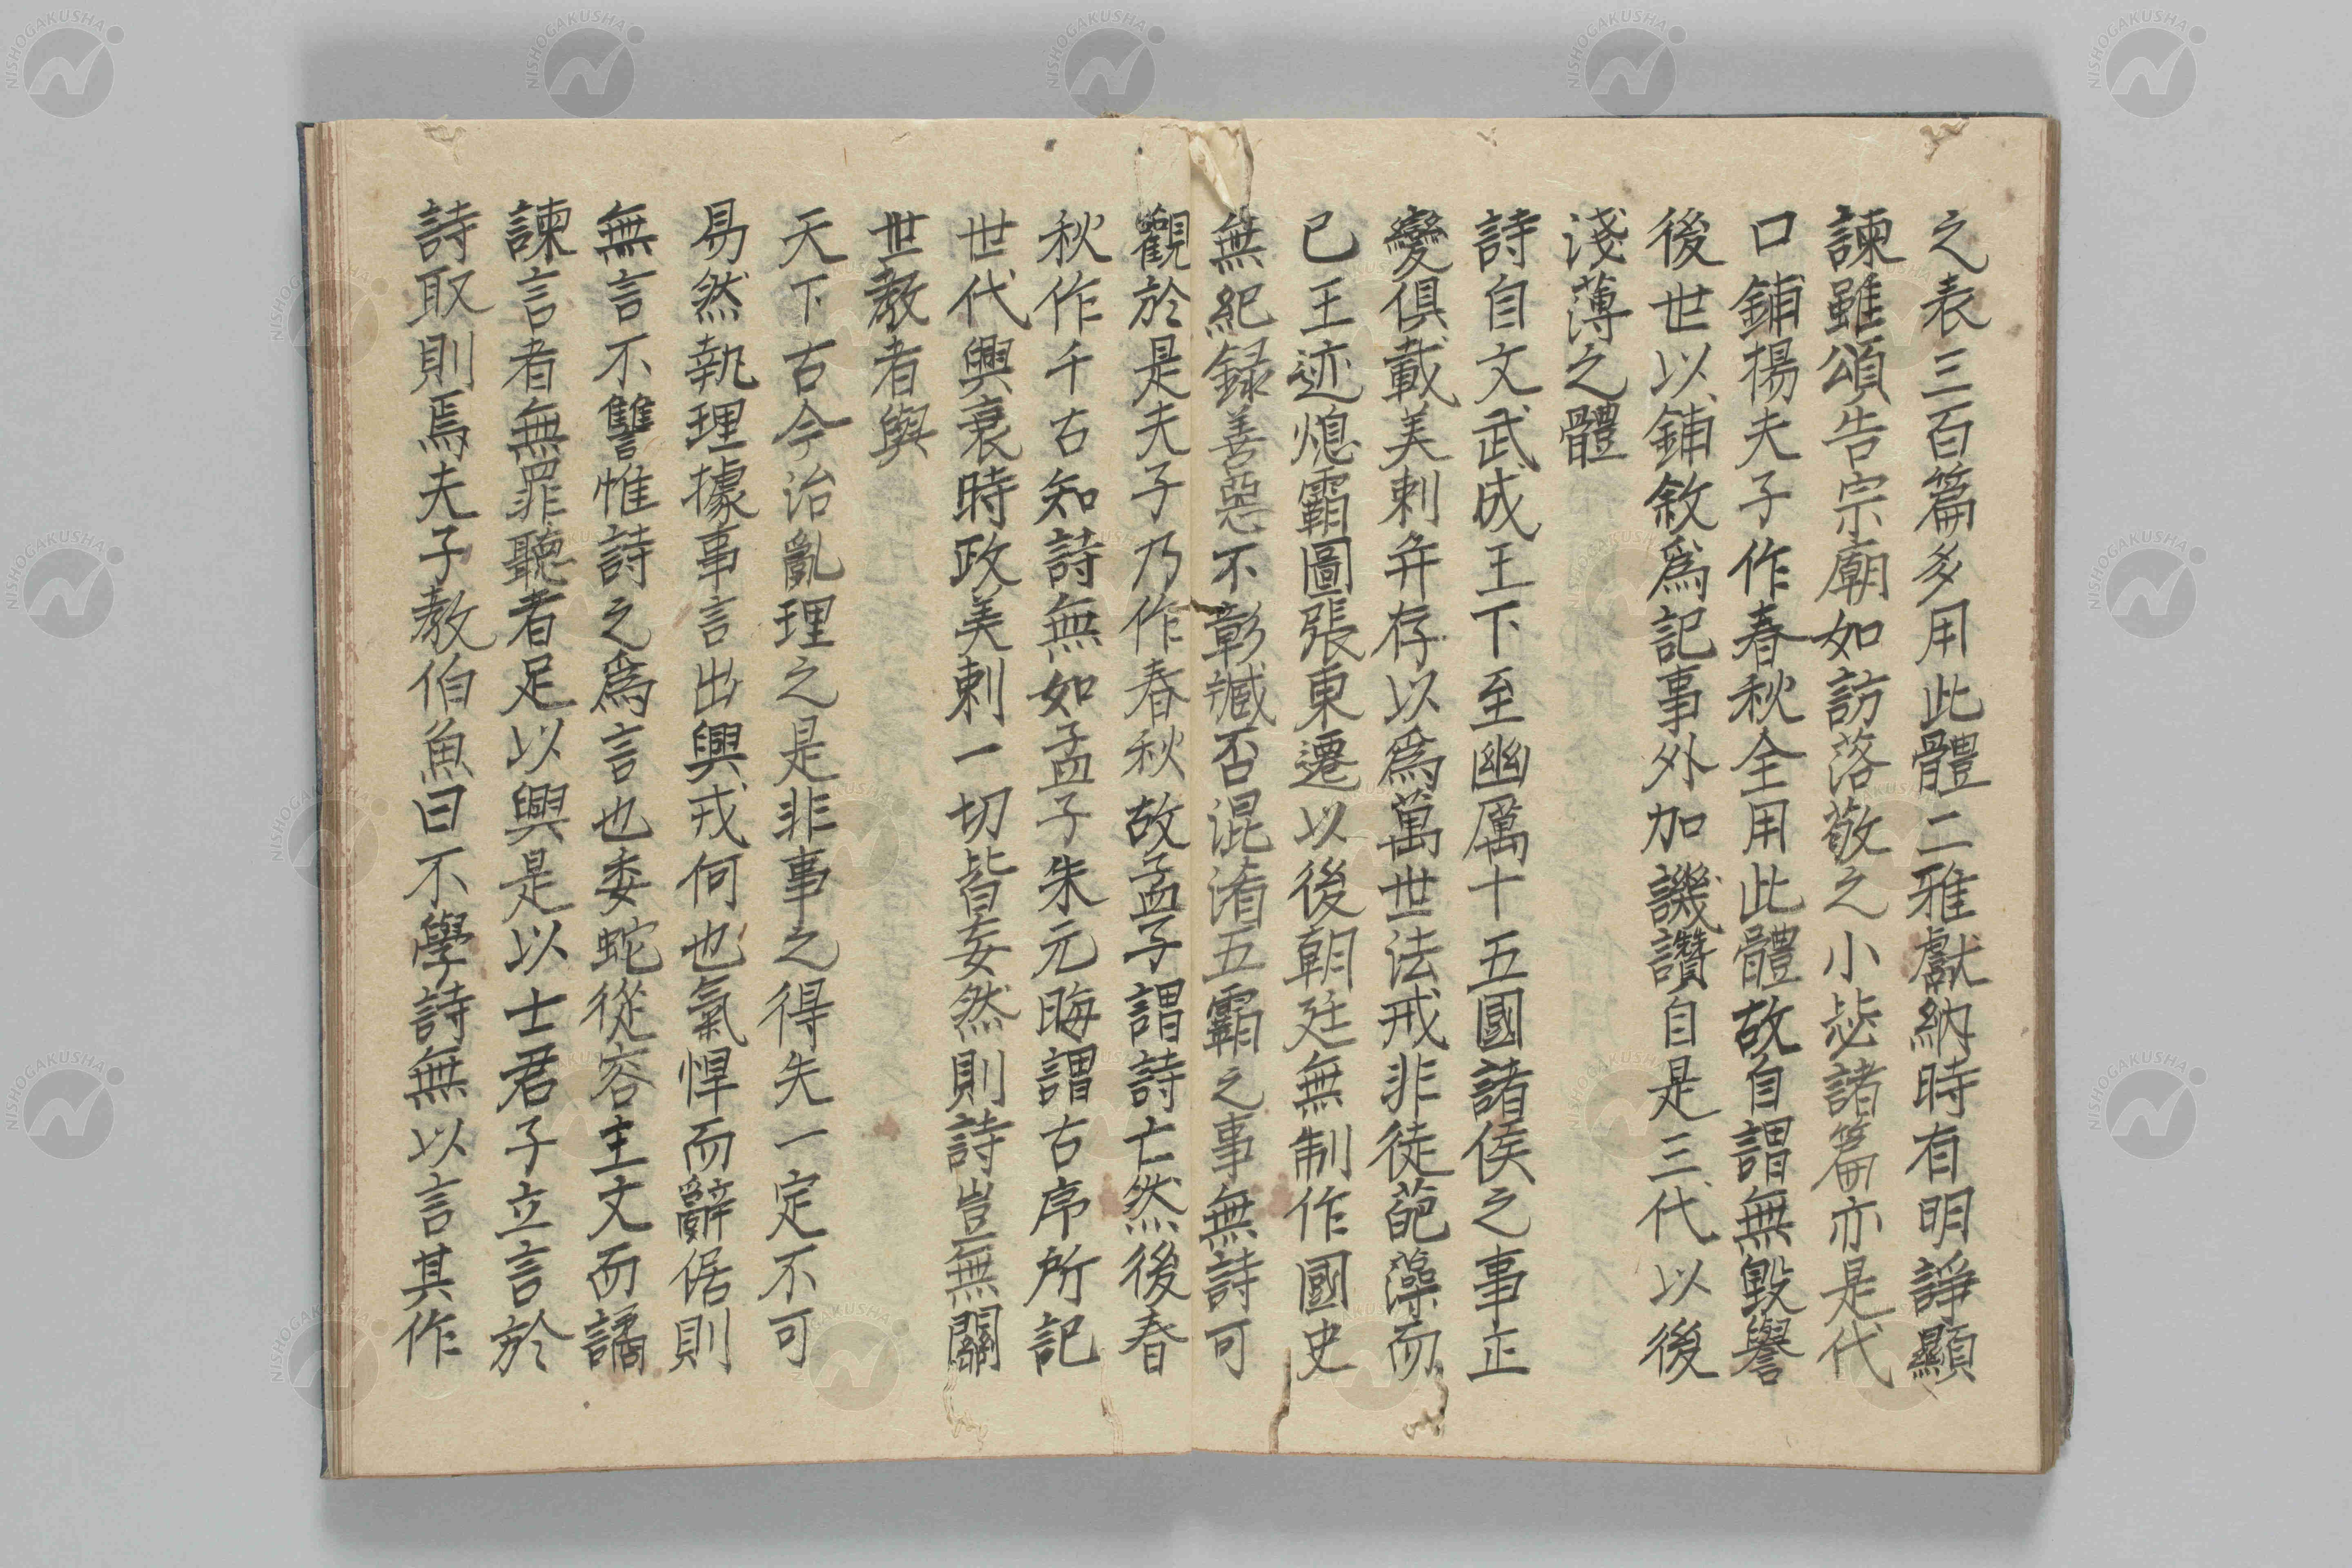 之表三百篇多用此體二雅獻納時有明諍顯
諫雖頌告宗廟如訪落敬之小毖諸篇亦是代
口鋪揚夫子作春秋全用此體故自謂無毀譽
後世以鋪敘爲記事外加譏讚自是三代以後
淺薄之體
詩自文武成王下至幽厲十五國諸侯之事正
變俱載美刺弁存以爲萬世法戒非徒葩藻而
已王迹熄霸圖張東遷以後朝廷無制作國史
無紀録善惡不彰臧否混淆五霸之事無詩可
觀於是夫子乃作春秋故孟子謂詩亡然後春
秋作千古知詩無如孟子朱元晦謂古序所記
世代興衰時政美刺一切皆妄然則詩豈無關
世教者與
天下古今治亂理之是非事之得失一定不可
易然執理據事言出興戎何也氣悍而辭倨則
無言不讐惟詩之爲言也委蛇從容主文而譎
諫言者無罪聽者足以興是以士君子立言於
詩取則焉夫子教伯魚曰不學詩無以言其作
NISHOGAKUSHA